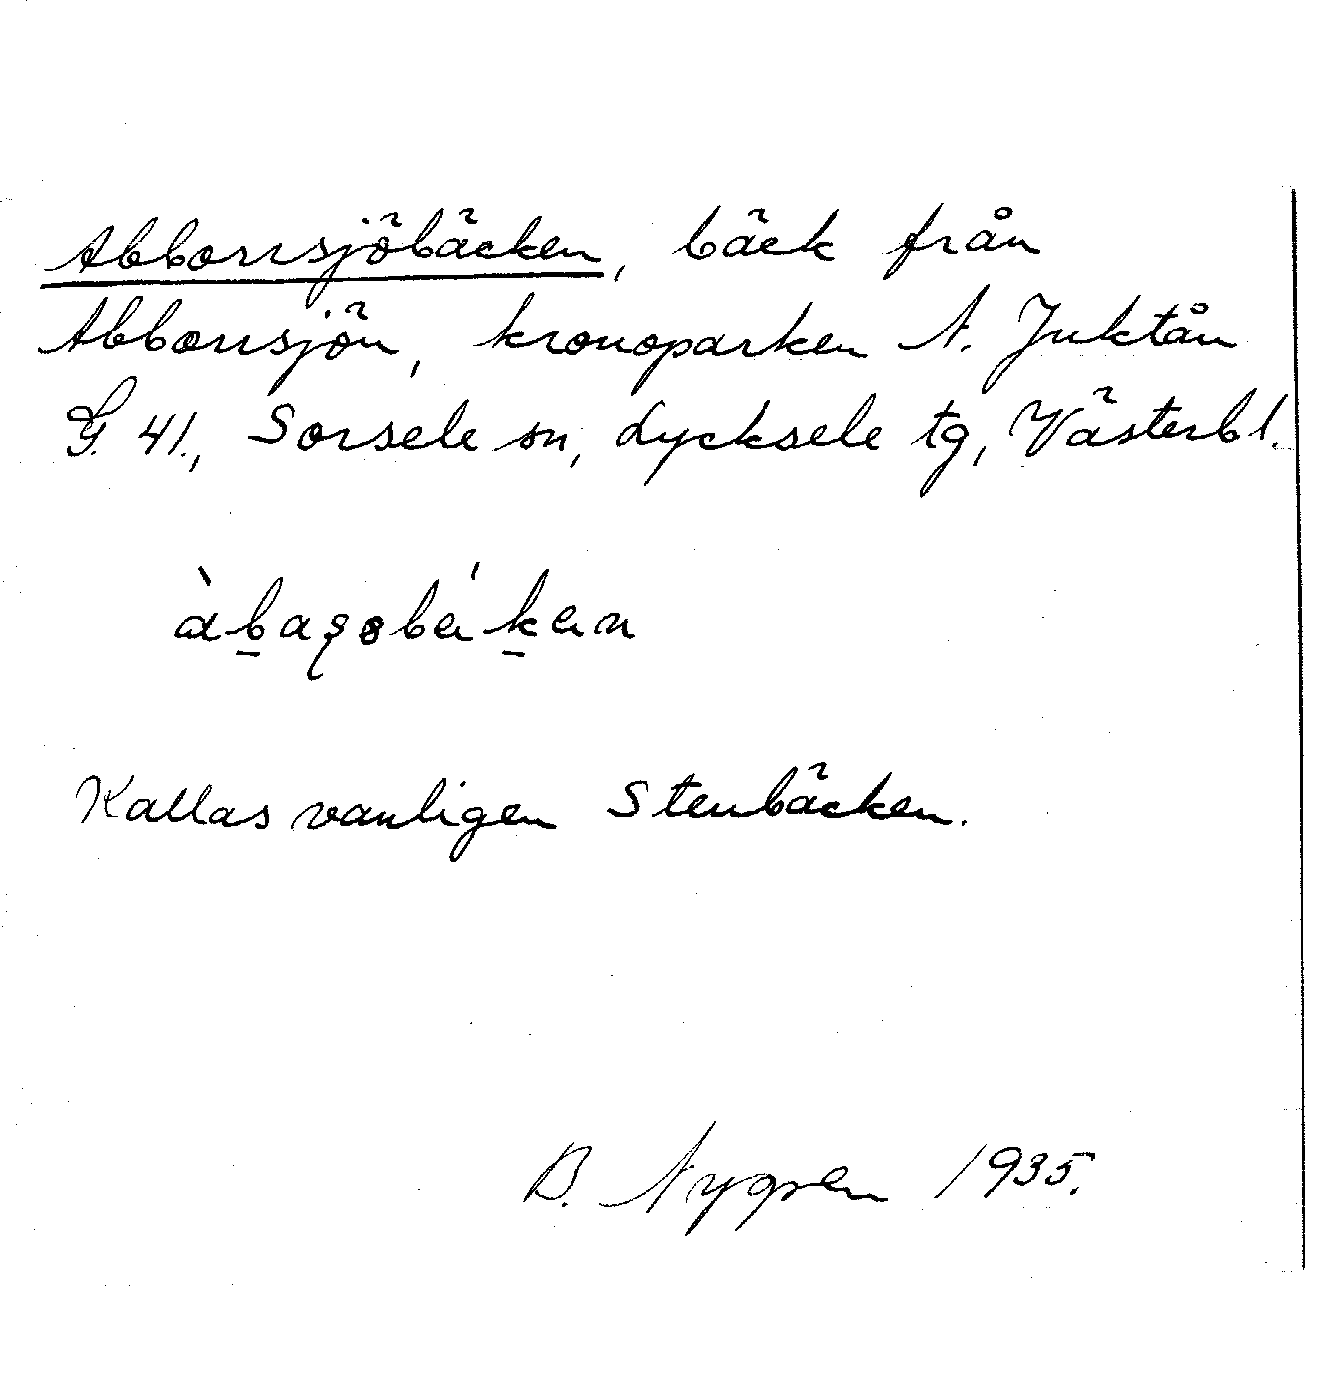 Abborrsjöbäcken, bäck från
Abborrsjön, kronoparken N. Juktån
G. 41., Sorsele sn, Lycksele tg, Västerbl.
Kallas vanligen Stenbäcken.
B. Nygren 1935.